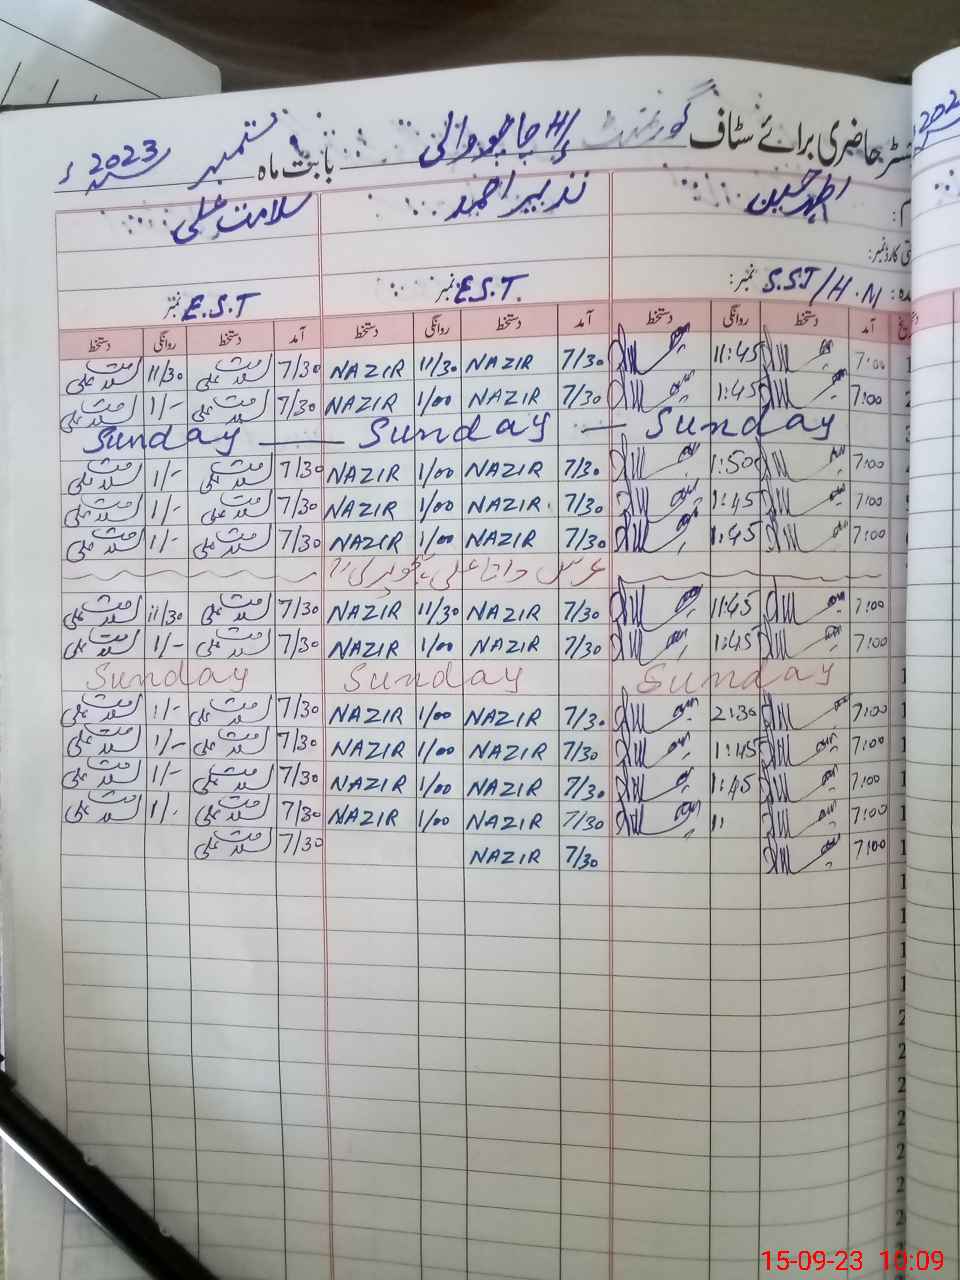 حاضری برائے سٹاف گورنمنٹ بابت ماہ ستمبر سنہ 2023ء
اطہر حسین نذیر احمد سلامت علی
S.S.T/H.M نمبر: E.S.T. نمبر: E.S.T نمبر
آمد دستخط روانگی دستخط آمد دستخط روانگی دستخط آمد دستخط روانگی دستخط
7:00 11:45 7/30 NAZIR 11/30 NAZIR 7/30 سلامت علی 11/30 سلامت علی
7:00 1:45 7/30 NAZIR 1/00 NAZIR 7/30 سلامت علی 1/- سلامت علی
Sunday — Sunday — Sunday
7:00 1:50 7/30 NAZIR 1/00 NAZIR 7/30 سلامت علی 1/- سلامت علی
7:00 1:45 7/30 NAZIR 1/00 NAZIR 7/30 سلامت علی 1/- سلامت علی
7:00 1:45 7/30 NAZIR 1/00 NAZIR 7/30 سلامت علی 1/- سلامت علی
عرس داتا علی ہجویری
7:00 11:45 7/30 NAZIR 11/30 NAZIR 7/30 سلامت علی 11/30 سلامت علی
7:00 1:45 7/30 NAZIR 1/00 NAZIR 7/30 سلامت علی 1/- سلامت علی
Sunday Sunday Sunday
7:00 2:30 7/30 NAZIR 1/00 NAZIR 7/30 سلامت علی 1/- سلامت علی
7:00 1:45 7/30 NAZIR 1/00 NAZIR 7/30 سلامت علی 1/- سلامت علی
7:00 1:45 7/30 NAZIR 1/00 NAZIR 7/30 سلامت علی 1/- سلامت علی
7:00 7/30 NAZIR 1/00 NAZIR 7/30 سلامت علی 1/- سلامت علی
7:00 7/30 NAZIR 7/30 سلامت علی
15-09-23 10:09